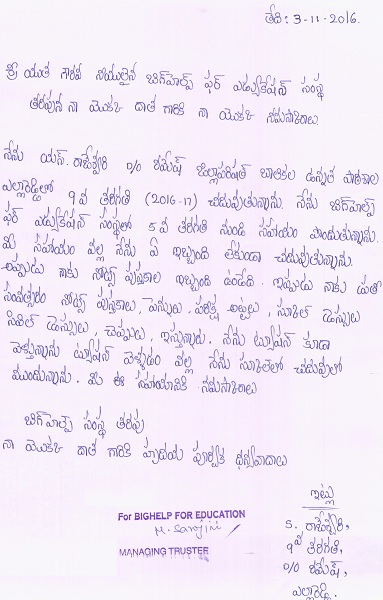 తేది: 3-11-2016.
శ్రీయుత గౌరవ నీయులైన బిగ్‌హెల్ప్ ఫర్ ఎడ్యుకేషన్ సంస్థ
తరపున నా యొక్క దాత గారికి నా యొక్క నమస్కారాలు.
నేను యస్. రాజేశ్వరి D/O రమేష్ జిల్లాపరిషత్ బాలికల ఉన్నత పాఠశాల
ఎల్లారెడ్డిలో 9వ తరగతి (2016-17) చదువుతున్నాను. నేను బిగ్‌హెల్ప్
ఫర్ ఎడ్యుకేషన్ సంస్థలో 5వ తరగతి నుండి సహాయం పొందుతున్నాను.
మీ సహాయం వల్ల నేను ఏ ఇబ్బంది లేకుండా చదువుతున్నాను.
అప్పుడు నాకు నోట్సు పుస్తకాల ఇబ్బంది ఉండేది. ఇప్పుడు నాకు ప్రతి
సంవత్సరం నోట్సు పుస్తకాలు, పెన్నులు, పరీక్ష అట్టలు, స్కూల్ డ్రెస్సులు
సివిల్ డ్రెస్సులు, చెప్పులు, ఇస్తున్నారు. నేను ట్యూషన్ కూడా
వెళ్తున్నాను ట్యూషన్ వెళ్ళడం వల్ల నేను స్కూల్‌లో చదువులో
ముందున్నాను. మీ ఈ సహాయానికి నమస్కారాలు
బిగ్‌హెల్ప్ సంస్థ తరపు
నా యొక్క దాత గారికి హృదయ పూర్వక ధన్యవాదాలు
ఇట్లు
S. రాజేశ్వరి,
9వ తరగతి,
D/O రమేష్,
ఎల్లారెడ్డి.
For BIGHELP FOR EDUCATION
M. Sarojini
MANAGING TRUSTEE